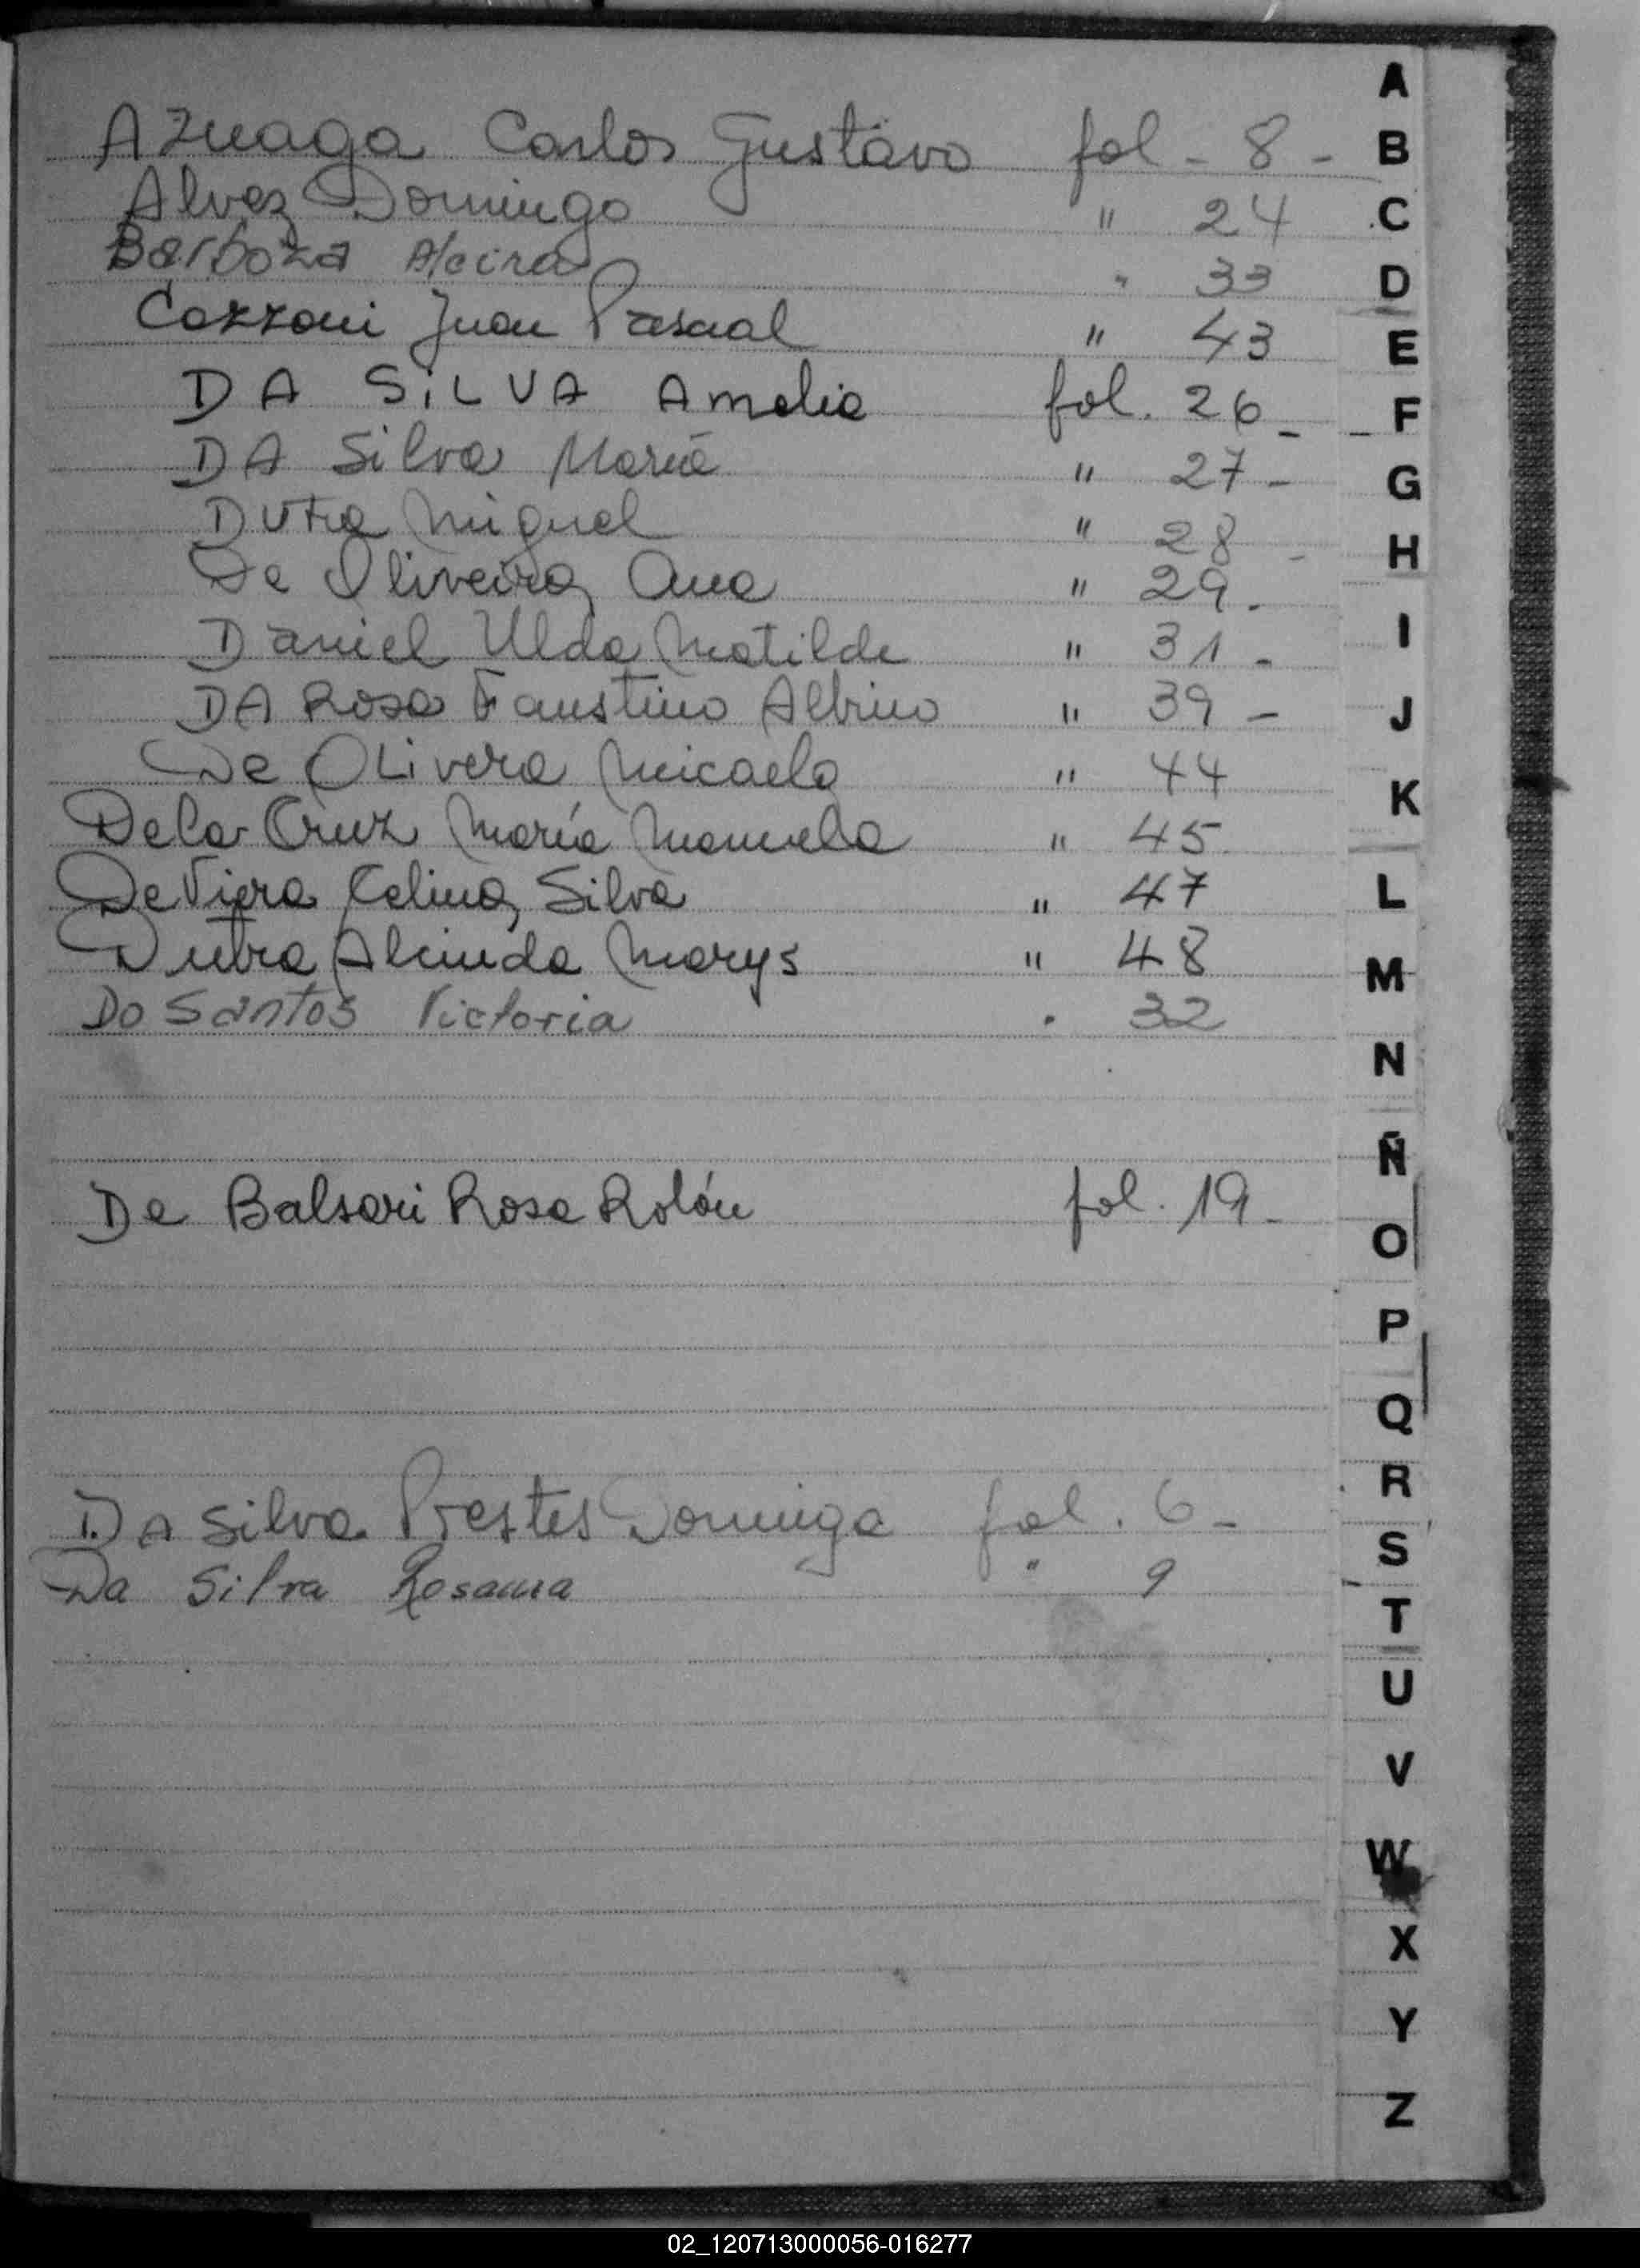 Azuaga Carlos Gustavo fol - 8 -
Alvez Domingo " 24
Barboza Alcira " 33
Cozzoni Juan Pascual " 43
DA SiLVA Amelia fol. 26 -
DA Silva María " 27 -
DUtra Miguel " 28 -
De Oliveira Ana " 29.
Daniel Ulda Matilde " 31 -
DA Rosa Faustino Albino " 39 -
De OLivera Micaela " 44
De la Cruz María Manuela " 45
De Viera Celina Silva " 47
Dutra Alcinda Marys " 48
Do Santos Victoria " 32
De Balsari Rosa Rolón fol. 19 -
DA Silva Prestes Dominga fol. 6 -
Da Silva Rosanna " 9
A
B
C
D
E
F
G
H
I
J
K
L
M
N
Ñ
O
P
Q
R
S
T
U
V
W
X
Y
Z
02_120713000056-016277